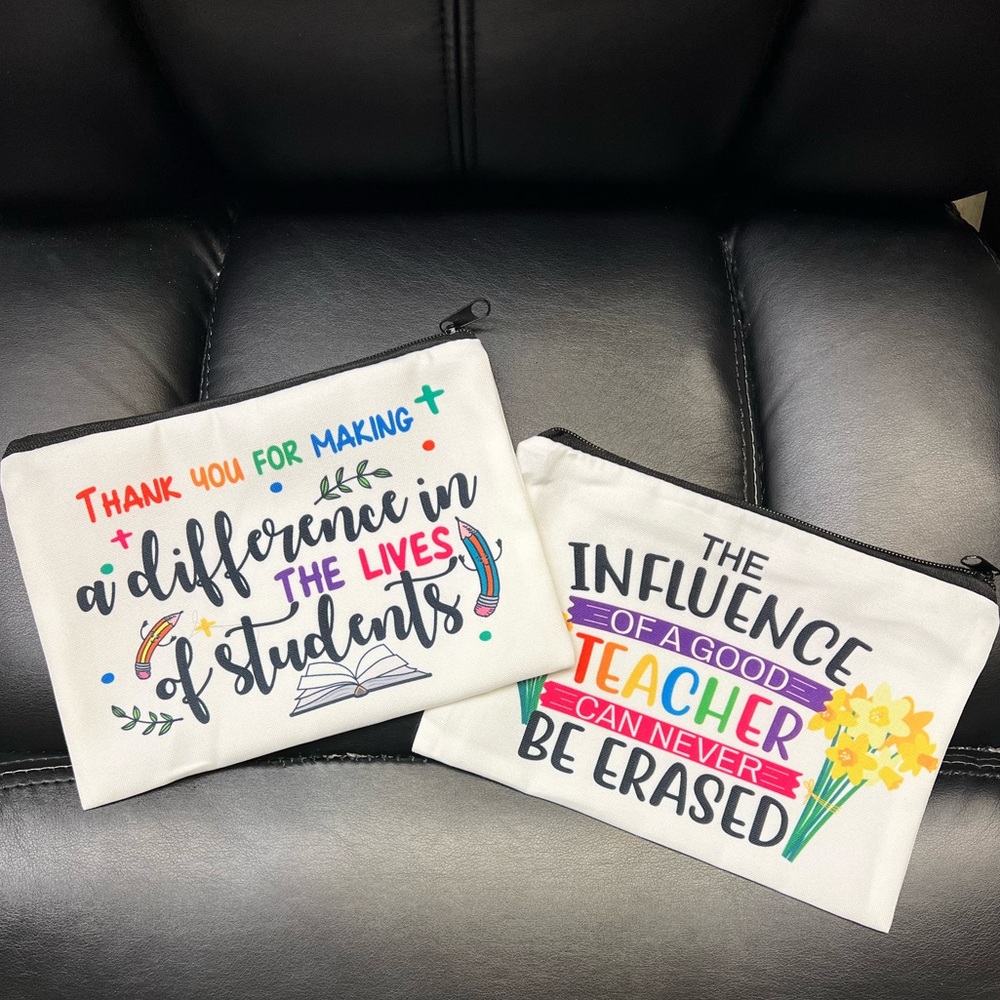 THANK YOU FOR MAKING
a difference in
THE LIVES
of students
THE
INFLUENCE
OF A GOOD
TEACHER
CAN NEVER
BE ERASED